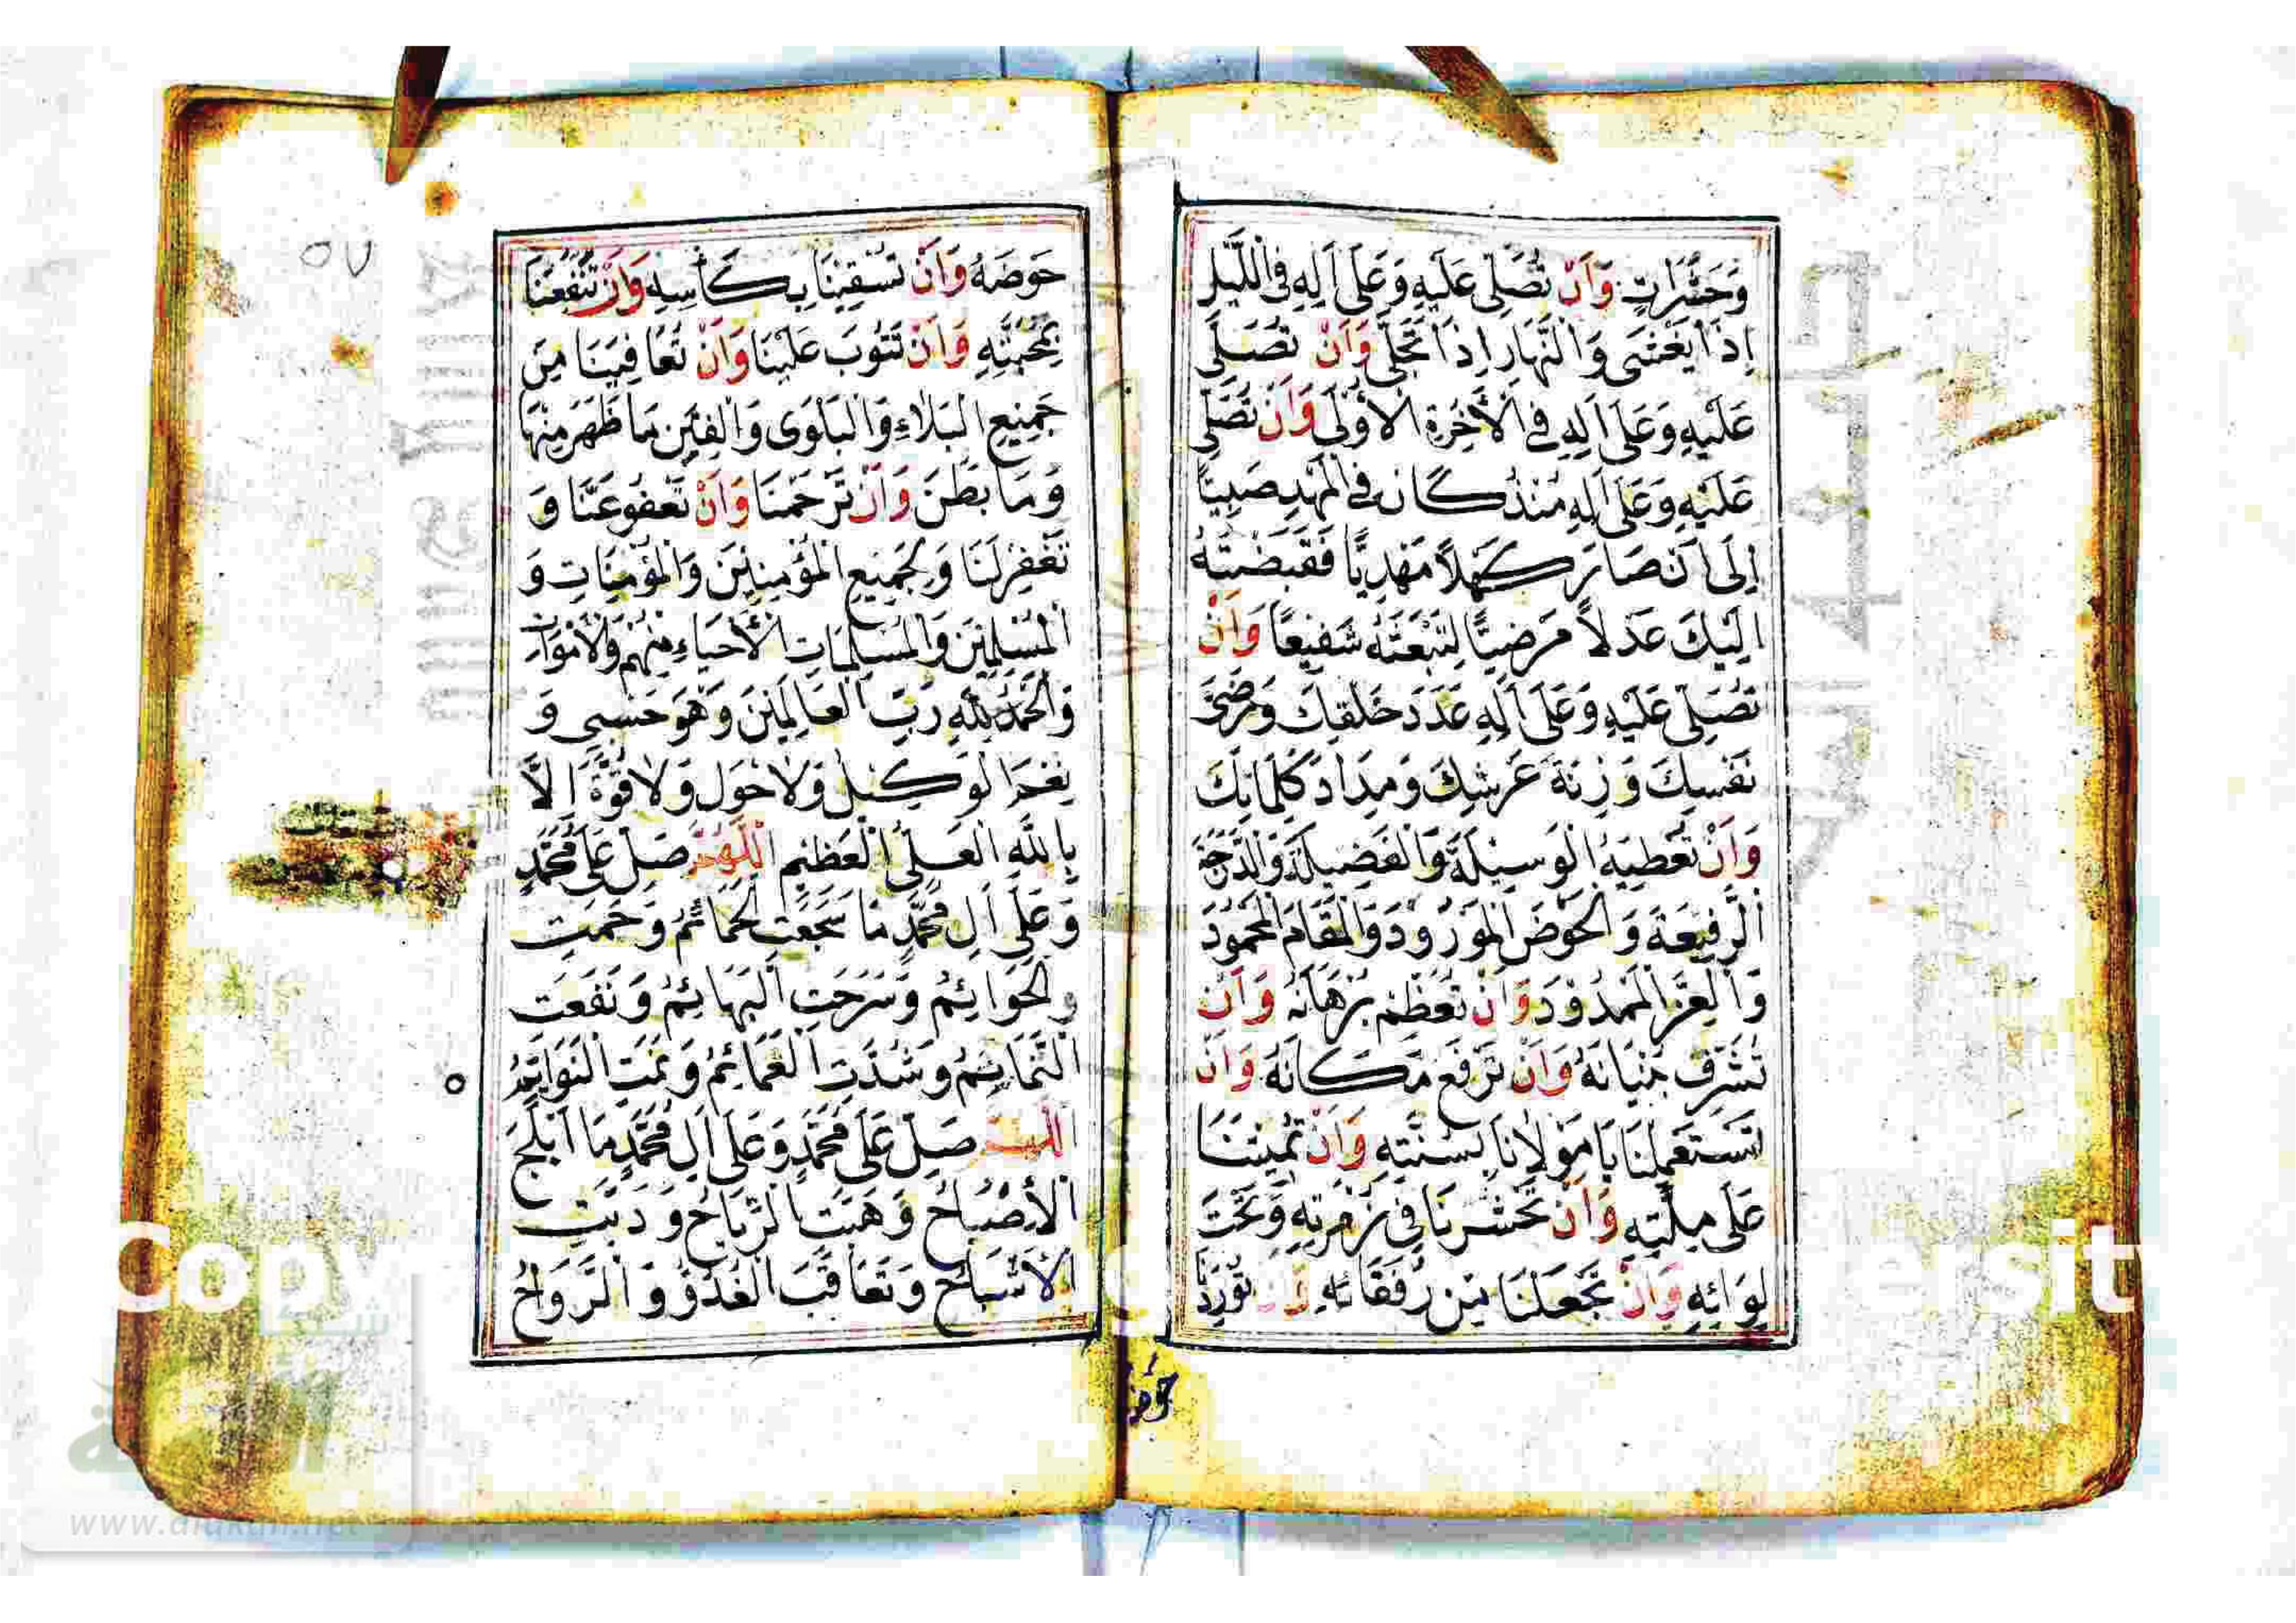 وَحَشَرَاتٍ وَاَنْ تُصَلِّىَ عَلَيْهِ وَعَلَى اٰلِهِ فِى اللَّيْلِ
اِذَا يَغْشَى وَالنَّهَارِ اِذَا تَجَلَّى وَاَنْ تُصَلِّىَ
عَلَيْهِ وَعَلَى اٰلِهِ فِى الْاٰخِرَةِ الْاُوْلَى وَاَنْ تُصَلِّىَ
عَلَيْهِ وَعَلَى اٰلِهِ مُنْذُ كَانَ فِى الْمَهْدِ صَبِيًّا
اِلَى اَنْ صَارَ كَهْلًا مَهْدِيًّا فَقَبَضْتَهُ
اِلَيْكَ عَدْلًا مَرْضِيًّا لِتَبْعَثَهُ شَفِيْعًا وَاَنْ
تُصَلِّىَ عَلَيْهِ وَعَلَى اٰلِهِ عَدَدَ خَلْقِكَ وَرِضَى
نَفْسِكَ وَزِنَةَ عَرْشِكَ وَمِدَادَ كَلِمَاتِكَ
وَاَنْ تُعْطِيَهُ الْوَسِيْلَةَ وَالْفَضِيْلَةَ وَالدَّرَجَةَ
الرَّفِيْعَةَ وَالْحَوْضَ الْمَوْرُوْدَ وَالْمَقَامَ الْمَحْمُوْدَ
وَالْعِزَّ الْمَمْدُوْدَ وَاَنْ تُعَظِّمَ بُرْهَانَهُ وَاَنْ
تُشَرِّفَ بُنْيَانَهُ وَاَنْ تَرْفَعَ مَكَانَهُ وَاَنْ
تَسْتَعْمِلَنَا يَا مَوْلَانَا بِسُنَّتِهِ وَاَنْ تُمِيْتَنَا
عَلَى مِلَّتِهِ وَاَنْ تَحْشُرَنَا فِى زُمْرَتِهِ وَتَحْتَ
لِوَائِهِ وَاَنْ تَجْعَلَنَا مِنْ رُفَقَائِهِ وَاَنْ تُوْرِدَنَا
حوض
حَوْضَهُ وَاَنْ تَسْقِيَنَا بِكَأْسِهِ وَاَنْ تَنْفَعَنَا
بِمَحَبَّتِهِ وَاَنْ تَتُوْبَ عَلَيْنَا وَاَنْ تُعَافِيَنَا مِنْ
جَمِيْعِ الْبَلَاءِ وَالْبَلْوَى وَالْفِتَنِ مَا ظَهَرَ مِنْهَا
وَمَا بَطَنَ وَاَنْ تَرْحَمَنَا وَاَنْ تَعْفُوَ عَنَّا وَ
تَغْفِرَ لَنَا وَلِجَمِيْعِ الْمُؤْمِنِيْنَ وَالْمُؤْمِنَاتِ وَ
الْمُسْلِمِيْنَ وَالْمُسْلِمَاتِ الْاَحْيَاءِ مِنْهُمْ وَالْاَمْوَاتِ
وَالْحَمْدُ لِلّٰهِ رَبِّ الْعَالَمِيْنَ وَهُوَ حَسْبِى وَ
نِعْمَ الْوَكِيْلُ وَلَا حَوْلَ وَلَا قُوَّةَ اِلَّا
بِاللّٰهِ الْعَلِىِّ الْعَظِيْمِ اَللّٰهُمَّ صَلِّ عَلَى مُحَمَّدٍ
وَعَلَى اٰلِ مُحَمَّدٍ مَا سَجَعَتِ الْحَمَائِمُ وَحَمَتِ
الْحَوَائِمُ وَسَرَحَتِ الْبَهَائِمُ وَنَفَعَتِ
التَّمَائِمُ وَشُدَّتِ الْعَمَائِمُ وَنَمَتِ النَّوَائِمُ
اَللّٰهُمَّ صَلِّ عَلَى مُحَمَّدٍ وَعَلَى اٰلِ مُحَمَّدٍ مَا اَبْلَجَ
الْاِصْبَاحُ وَهَبَّتِ الرِّيَاحُ وَدَبَّتِ
الْاَشْبَاحُ وَتَعَاقَبَ الْغُدُوُّ وَالرَّوَاحُ
٥٧
www.alukah.net